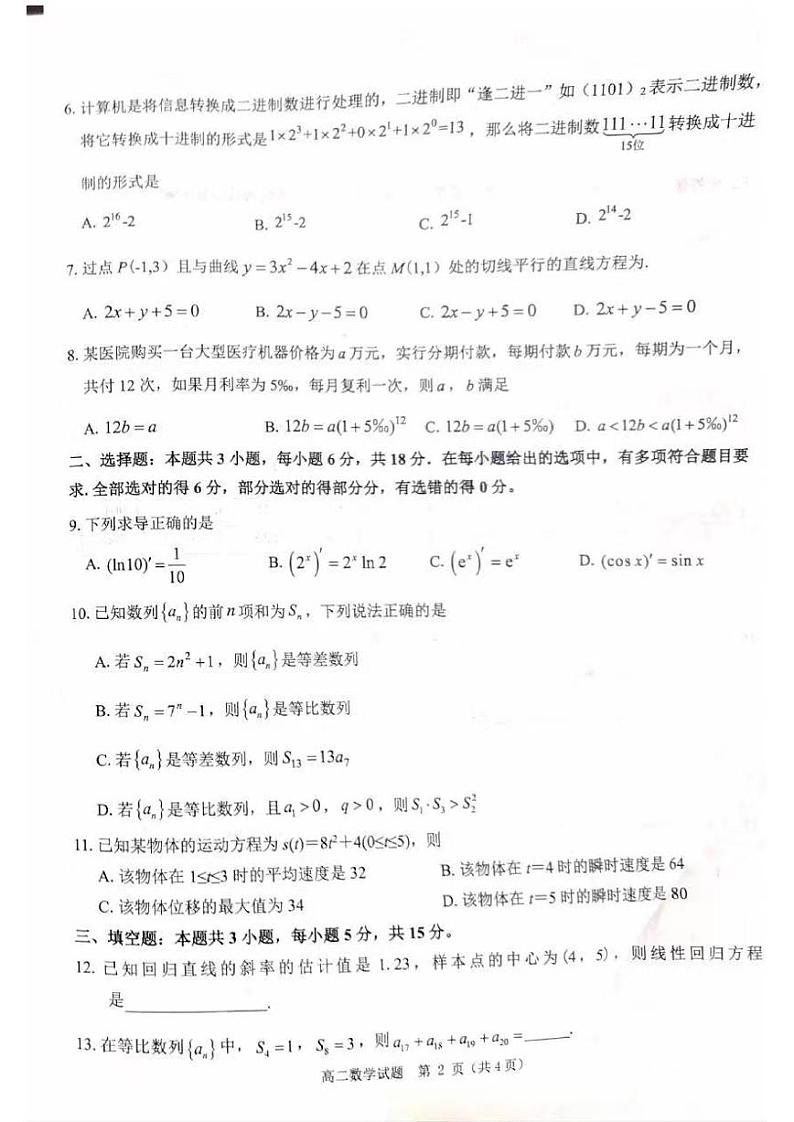 6. 计算机是将信息转换成二进制数进行处理的，二进制即“逢二进一”如（1101）₂表示二进制数，
将它转换成十进制的形式是1×2³+1×2²+0×2¹+1×2⁰=13，那么将二进制数111⋯11转换成十进
15位
制的形式是
A. 2¹⁶-2 B. 2¹⁵-2 C. 2¹⁵-1 D. 2¹⁴-2
7. 过点 P(-1,3）且与曲线 y=3x²−4x+2 在点 M(1,1）处的切线平行的直线方程为.
A. 2x+y+5=0 B. 2x−y−5=0 C. 2x−y+5=0 D. 2x+y−5=0
8. 某医院购买一台大型医疗机器价格为 a 万元，实行分期付款，每期付款 b 万元，每期为一个月，
共付 12 次，如果月利率为 5‰，每月复利一次，则 a，b 满足
A. 12b=a B. 12b=a(1+5‰)¹² C. 12b=a(1+5‰) D. a<12b<a(1+5‰)¹²
二、选择题：本题共 3 小题，每小题 6 分，共 18 分．在每小题给出的选项中，有多项符合题目要
求. 全部选对的得 6 分，部分选对的得部分分，有选错的得 0 分。
9. 下列求导正确的是
A. (ln10)′=1/10 B. (2ˣ)′=2ˣ ln 2 C. (eˣ)′=eˣ D. (cos x)′=sin x
10. 已知数列{aₙ}的前 n 项和为 Sₙ，下列说法正确的是
A. 若 Sₙ=2n²+1，则{aₙ}是等差数列
B. 若 Sₙ=7ⁿ−1，则{aₙ}是等比数列
C. 若{aₙ}是等差数列，则 S₁₃=13a₇
D. 若{aₙ}是等比数列，且 a₁>0，q>0，则 S₁·S₃>S₂²
11. 已知某物体的运动方程为 s(t)=8t²+4(0≤t≤5)，则
A. 该物体在 1≤t≤3 时的平均速度是 32 B. 该物体在 t=4 时的瞬时速度是 64
C. 该物体位移的最大值为 34 D. 该物体在 t=5 时的瞬时速度是 80
三、填空题：本题共 3 小题，每小题 5 分，共 15 分。
12. 已知回归直线的斜率的估计值是 1.23，样本点的中心为(4，5)，则线性回归方程
是____________.
13. 在等比数列{aₙ}中，S₄=1，S₈=3，则 a₁₇+a₁₈+a₁₉+a₂₀=_____.
高二数学试题 第 2 页（共 4 页）